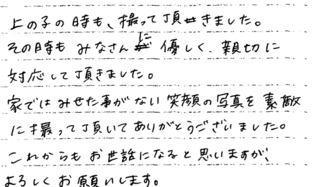 上の子の時も、撮って頂きました。
その時も みなさんに 優しく、親切に
対応して頂きました。
家ではみせた事がない笑顔の写真を素敵
に撮って頂いてありがとうございました。
これからもお世話になると思いますが、
よろしくお願いします。